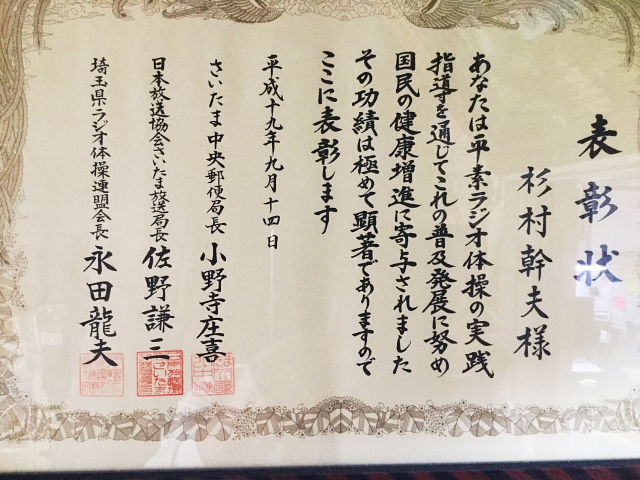 表彰状
杉村幹夫様
あなたは平素ラジオ体操の実践
指導を通じてこれの普及発展に努め
国民の健康増進に寄与されました
その功績は極めて顕著でありますので
ここに表彰します
平成十九年九月十四日
さいたま中央郵便局長 小野寺庄喜
日本放送協会さいたま放送局長 佐野謙三
埼玉県ラジオ体操連盟会長 永田龍夫